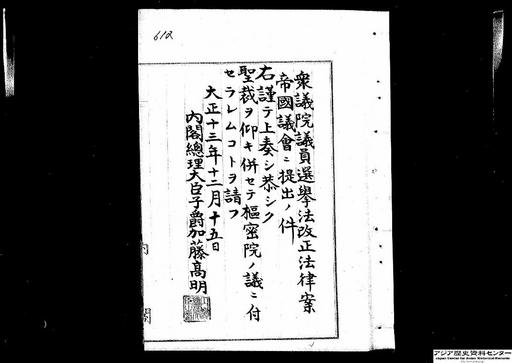 612
衆議院議員選擧法改正法律案
帝國議會ニ提出ノ件
右謹テ上奏シ恭シク
聖裁ヲ仰キ併セテ樞密院ノ議ニ付
セラレムコトヲ請フ
大正十三年十二月十五日
內閣總理大臣子爵加藤高明
內閣
アジア歴史資料センター
Japan Center for Asian Historical Records